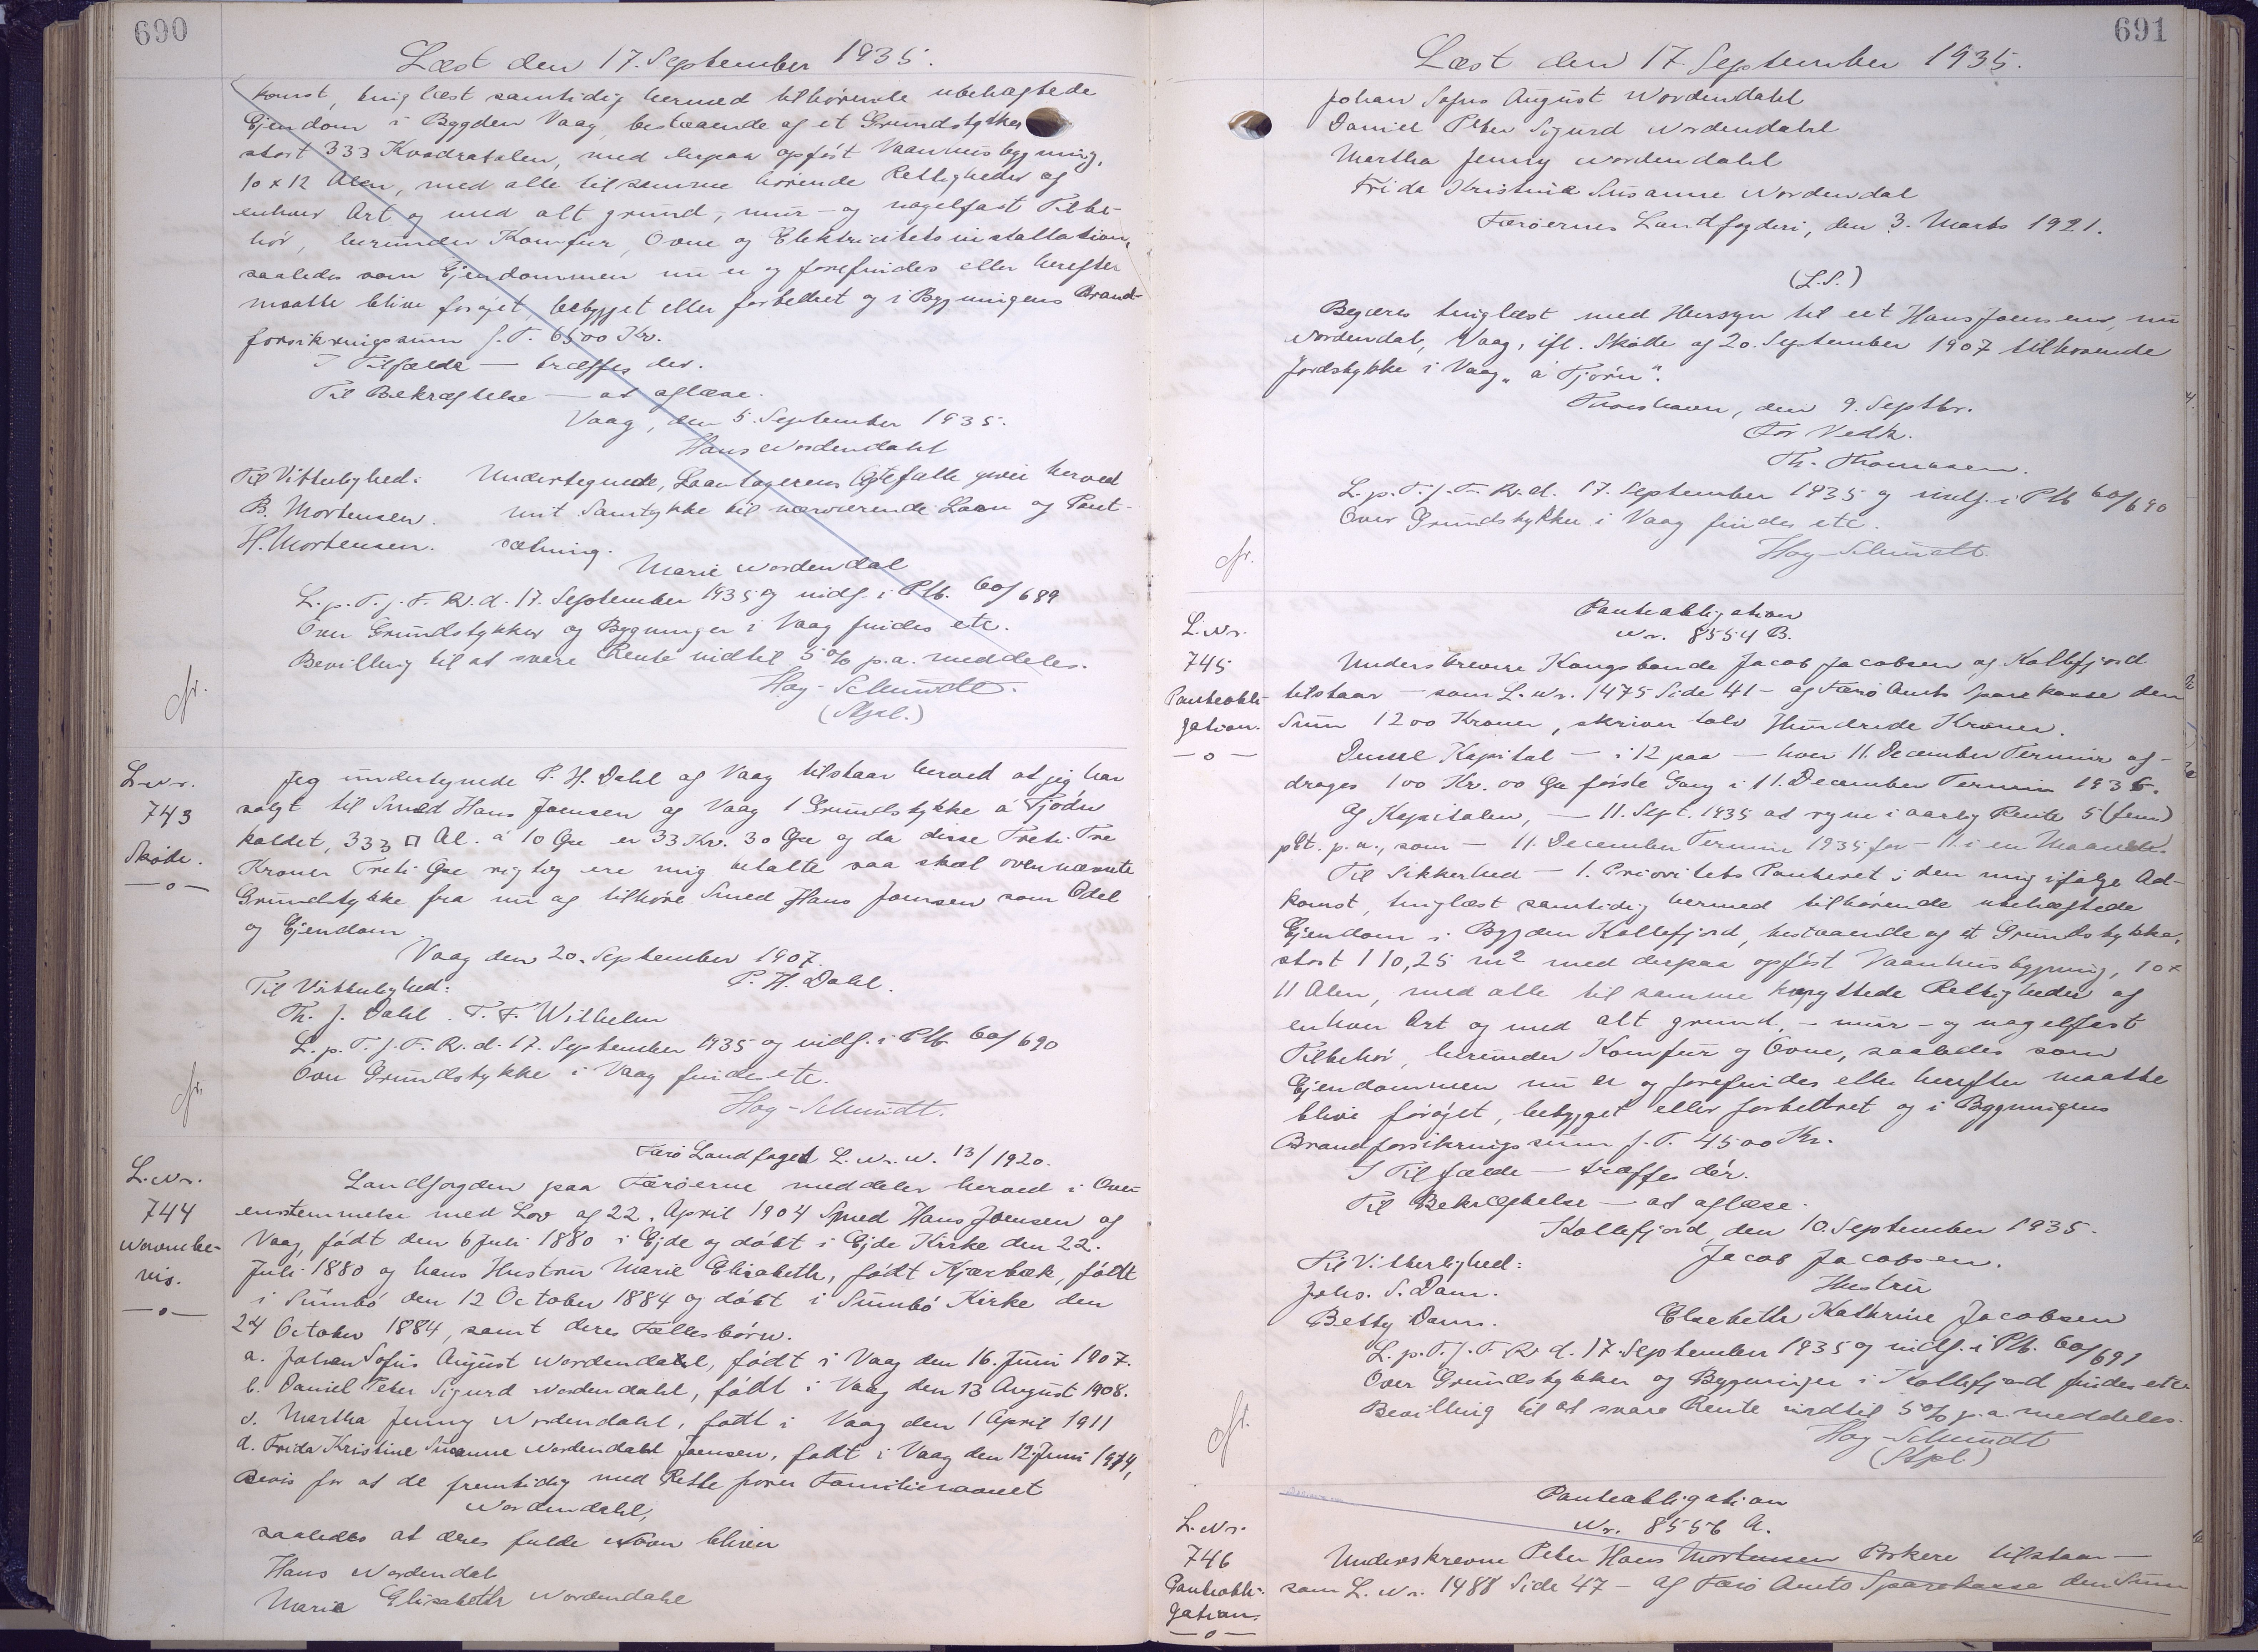 690
Læst den 17. September 1935.
komst, tinglæst samtidig hermed tilhørende ubehæftede
Ejendom i Bygden Vaag, bestaaende af et Grundstykke
stort 333 Kvadratalen, med derpaa opført Vaanhusbygning,
10 x 12 Alen, med alle til samme hørende Rettigheder af
enhver Art og med alt grund-, mur- og nagelfast Tilbe-
hør, herunder Komfur, Ovne og Elektricitetsinstallation,
saaledes som Ejendommen nu er og forefindes eller herefter
maatte blive forøjet, bebygget eller forbedret og i Bygningens Brand-
forsikringssum f. T. 6500 Kr.
I Tilfælde — træffes der.
Til Bekræftelse — at aflæse.
Vaag, den 5. September 1935.
Hans Nordendahl
Til Vitterlighed: Undertegnede, Laantagerens Ægtefælle giver herved
B. Mortensen. mit Samtykke til nærværende Laan og Pant-
H. Mortensen. sætning.
Marie Nordendal
L. p. T. f. F. R. d. 17. September 1935 og indf. i Ptb. 60/689
Over Grundstykker og Bygninger i Vaag findes etc.
Bevilling til at svare Rente indtil 5 % p. a. meddeles.
Høg-Schmidt.
(Stpl.)
cfr.
L. Nr.
743
Skøde.
—o—
Jeg undertegnede P. H. Dahl af Vaag tilstaar herved at jeg har
solgt til Smed Hans Joensen af Vaag 1 Grundstykke á Tjødn
kaldet, 333 □ Al. á 10 Øre er 33 Kr. 30 Øre og da disse Treti Tre
Kroner Treti Øre rigtig ere mig betalte saa skal ovennævnte
Grundstykke fra nu af tilhøre Smed Hans Joensen som Odel
og Ejendom.
Vaag den 20. September 1907.
Til Vitterlighed: P. H. Dahl.
Th. J. Dahl. T. F. Wilhelm
L. p. T. f. F. R. d. 17. September 1935 og indf. i Ptb. 60/690
Over Grundstykke i Vaag findes etc.
Høg-Schmidt.
cfr.
L. Nr.
744
Navnebe-
vis.
—o—
Færø Landfoged L. Nr. N. 13/1920.
Landfogden paa Færøerne meddeler herved i Over-
ensstemmelse med Lov af 22. April 1904 Smed Hans Joensen af
Vaag, født den 6 Juli 1880 i Ejde og døbt i Ejde Kirke den 22.
Juli 1880 og hans Hustru Marie Elisabeth, født Kjærbæk, født
i Sumbø den 12 October 1884 og døbt i Sumbø Kirke den
24 October 1884, samt deres Fællesbørn.
a. Johan Sofus August Nordendahl, født i Vaag den 16. Juni 1907.
b. Daniel Peter Sigurd Nordendahl, født i Vaag den 13 August 1908.
c. Martha Jenny Nordendahl, født i Vaag den 1 April 1911
d. Frida Kristine Susanne Nordendahl Joensen, født i Vaag den 12. Juni 1914,
Bevis for at de fremtidig med Rette fører Familienavnet
Nordendahl,
saaledes at deres fulde Navn bliver
Hans Nordendal
Maria Elisabeth Nordendahl
691
Læst den 17 September 1935.
Johan Sofus August Nordendahl
Daniel Peter Sigurd Nordendahl
Martha Jenny Nordendahl
Frida Kristine Susanne Nordendal
Færøernes Landfogderi, den 3. Marts 1921.
(L.S.)
Begæres tinglæst med Hensyn til eet Hans Joensens, nu
Nordendal, Vaag, ifl. Skøde af 20. September 1907 tilhørende
Jordstykke i Vaag „á Tjørn".
Thorshavn, den 9. Septbr.
For Vedk.
Th. Thomasen.
L. p. T. f. F. R. d. 17. September 1935 og indf. i Ptb 60/690
Over Grundstykke i Vaag findes etc.
Høg-Schmidt.
cfr.
L. Nr.
745
Panteobli-
gation.
—o—
Panteobligation
Nr. 8554 B.
Underskrevne Kongsbonde Jacob Jacobsen af Kollefjord
tilstaar — som L. Nr. 1475 Side 41 — af Færø Amts Sparekasse den
Sum 1200 Kroner, skriver tolv Hundrede Kroner.
Denne Kapital — i 12 paa — hver 11. December Termin af-
drages 100 Kr. 00 Øre første Gang i 11. December Termin 1936.
Af Kapitalen, — 11. Sept. 1935 at regne i aarlig Rente 5 (fem)
pCt. p. a., som — 11. December Termin 1935 for — 11. i en Maaned.
Til Sikkerhed — 1. Prioritets Panteret i den mig ifølge Ad-
komst, tinglæst samtidig hermed tilhørende ubehæftede
Ejendom i Bygden Kollefjord, bestaaende af et Grundstykke,
stort 110,25 m2 med derpaa opført Vaanhusbygning, 10 x
11 Alen, med alle til samme knyttede Rettigheder af
enhver Art og med alt grund-, mur- og nagelfast
Tilbehør, herunder Komfur og Ovne, saaledes som
Ejendommen nu er og forefindes eller herefter maatte
blive forøjet, bebygget eller forbedret og i Bygningens
Brandforsikringssum f. T. 4500 Kr.
I Tilfælde — træffes dér.
Til Bekræftelse — at aflæse.
Kollefjord, den 10. September 1935.
Til Vitterlighed: Jacob Jacobsen.
Johs. S. Dam. Hustru
Betty Dam. Elsebeth Kathrine Jacobsen
L. p. T. f. F. R. d. 17. September 1935 og indf. i Ptb. 60/691
Over Grundstykker og Bygninger i Kollefjord findes etc.
Bevilling til at svare Rente indtil 5 % p. a. meddeles.
Høg-Schmidt
(Stpl.)
cfr.
L. Nr.
746
Panteobli-
gation.
—o—
Panteobligation
Nr. 8556 A.
Underskrevne Peter Hans Mortensen Porkere tilstaar —
som L. Nr. 1488 Side 47 — af Færø Amts Sparekasse den Sum